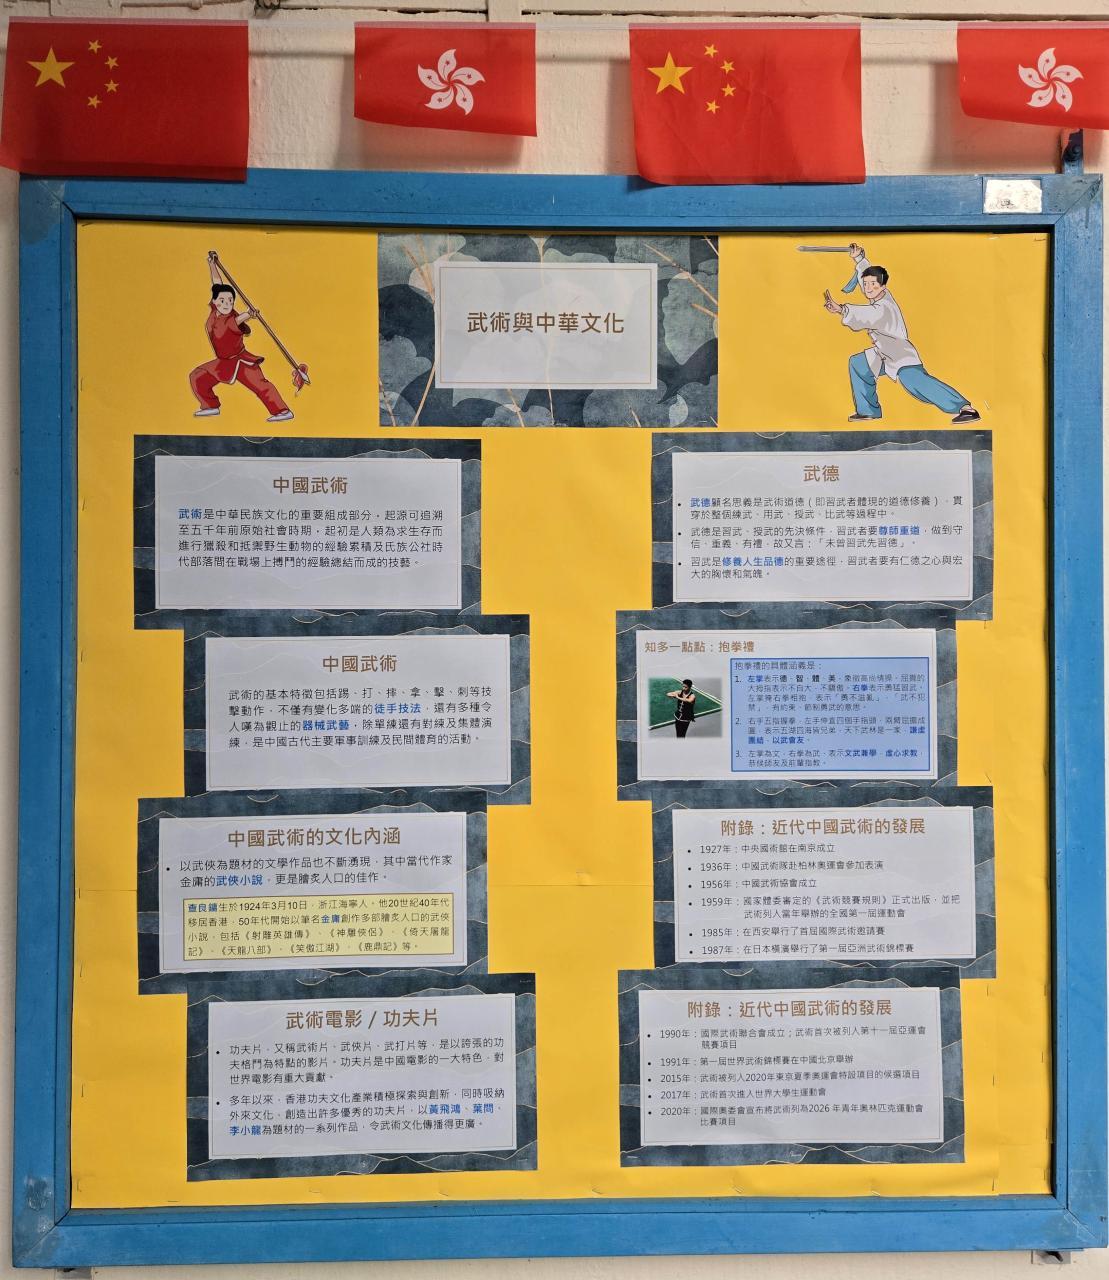 武術與中華文化
中國武術
武術是中華民族文化的重要組成部分，起源可追溯
至五千年前原始社會時期，起初是人類為求生存而
進行獵殺和抵禦野生動物的經驗累積及民族公社時
代部落間在戰場上搏鬥的經驗總結而成的技藝。
中國武術
武術的基本特徵包括踢、打、摔、拿、擊、刺等技
擊動作，不僅有變化多端的徒手技法，還有多種令
人嘆為觀止的器械武藝，除單練還有對練及集體演
練，是中國古代主要軍事訓練及民間體育的活動。
中國武術的文化內涵
• 以武俠為題材的文學作品也不斷湧現，其中當代作家
金庸的武俠小說，更是膾炙人口的佳作。
查良鏞生於1924年3月10日，浙江海寧人。他20世紀40年代
移居香港，50年代開始以筆名金庸創作多部膾炙人口的武俠
小說，包括《射雕英雄傳》、《神雕俠侶》、《倚天屠龍
記》、《天龍八部》、《笑傲江湖》、《鹿鼎記》等。
武術電影 / 功夫片
• 功夫片，又稱武術片、武俠片、武打片等，是以誇張的功
夫格鬥為特點的影片。功夫片是中國電影的一大特色，對
世界電影有重大貢獻。
• 多年以來，香港功夫文化產業積極探索與創新，同時吸納
外來文化，創造出許多優秀的功夫片，以黃飛鴻、葉問、
李小龍為題材的一系列作品，令武術文化傳播得更廣。
武德
• 武德顧名思義是武術道德（即習武者體現的道德修養），貫
穿於整個練武、用武、授武、比武等過程中。
• 武德是習武、授武的先決條件，習武者要尊師重道，做到守
信、重義、有禮，故又言：「未曾習武先習德」。
• 習武是修養人生品德的重要途徑，習武者要有仁德之心與宏
大的胸懷和氣魄。
知多一點點：抱拳禮
抱拳禮的具體涵義是：
1. 左掌表示德、智、體、美，象徵高尚情操，屈攏的
大拇指表示不自大、不驕傲。右拳表示勇猛習武。
左掌掩右拳相抱，表示「勇不滋亂」、「武不犯
禁」，有約束、節制勇武的意思。
2. 右手五指握拳，左手伸直四個手指頭，兩臂屈攏成
圓，表示五湖四海皆兄弟，天下武林是一家，謙虛
團結，以武會友。
3. 左掌為文，右拳為武，表示文武兼學，虛心求教，
恭候師友及前輩指教。
附錄：近代中國武術的發展
• 1927年：中央國術館在南京成立
• 1936年：中國武術隊赴柏林奧運會參加表演
• 1956年：中國武術協會成立
• 1959年：國家體委審定的《武術競賽規則》正式出版，並把
武術列入當年舉辦的全國第一屆運動會
• 1985年：在西安舉行了首屆國際武術邀請賽
• 1987年：在日本橫濱舉行了第一屆亞洲武術錦標賽
附錄：近代中國武術的發展
• 1990年：國際武術聯合會成立；武術首次被列入第十一屆亞運會
競賽項目
• 1991年：第一屆世界武術錦標賽在中國北京舉辦
• 2015年：武術被列入2020年東京夏季奧運會特設項目的候選項目
• 2017年：武術首次進入世界大學生運動會
• 2020年：國際奧委會宣布將武術列為2026年青年奧林匹克運動會
比賽項目